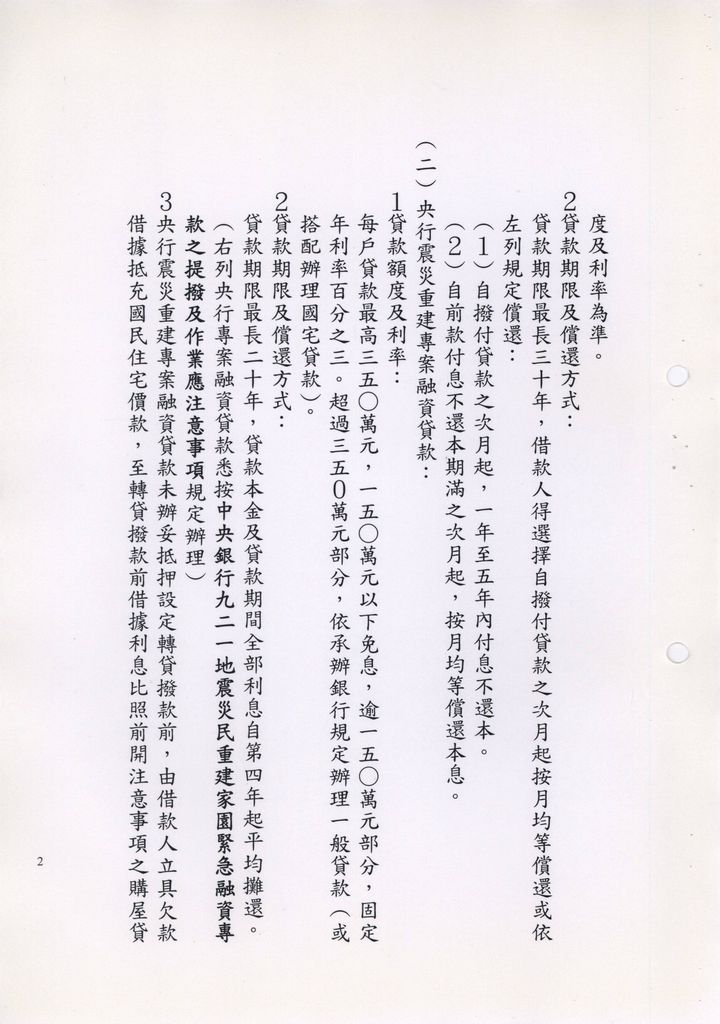 度及利率為準。
2貸款期限及償還方式：
貸款期限最長三十年，借款人得選擇自撥付貸款之次月起按月均等償還或依
左列規定償還：
（1）自撥付貸款之次月起，一年至五年內付息不還本。
（2）自前款付息不還本期滿之次月起，按月均等償還本息。
（二）央行震災重建專案融資貸款：
1貸款額度及利率：
每戶貸款最高三五〇萬元，一五〇萬元以下免息，逾一五〇萬元部分，固定
年利率百分之三。超過三五0萬元部分，依承辦銀行規定辦理一般貸款（或
搭配辦理國宅貸款）。
2貸款期限及償還方式：
貸款期限最長二十年，貸款本金及貸款期間全部利息自第四年起平均攤還。
（右列央行專案融資貸款悉按中央銀行九二一地震災民重建家園緊急融資專
款之提撥及作業應注意事項規定辦理）
3央行震災重建專案融資貸款未辦妥抵押設定轉貸撥款前，由借款人立具欠款
借據抵充國民住宅價款，至轉貸撥款前借據利息比照前開注意事項之購屋貸
2